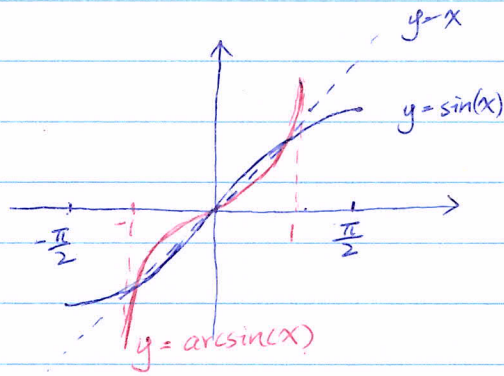 y=x
y=sin(x)
-π/2
-1
1
π/2
y=arcsin(x)